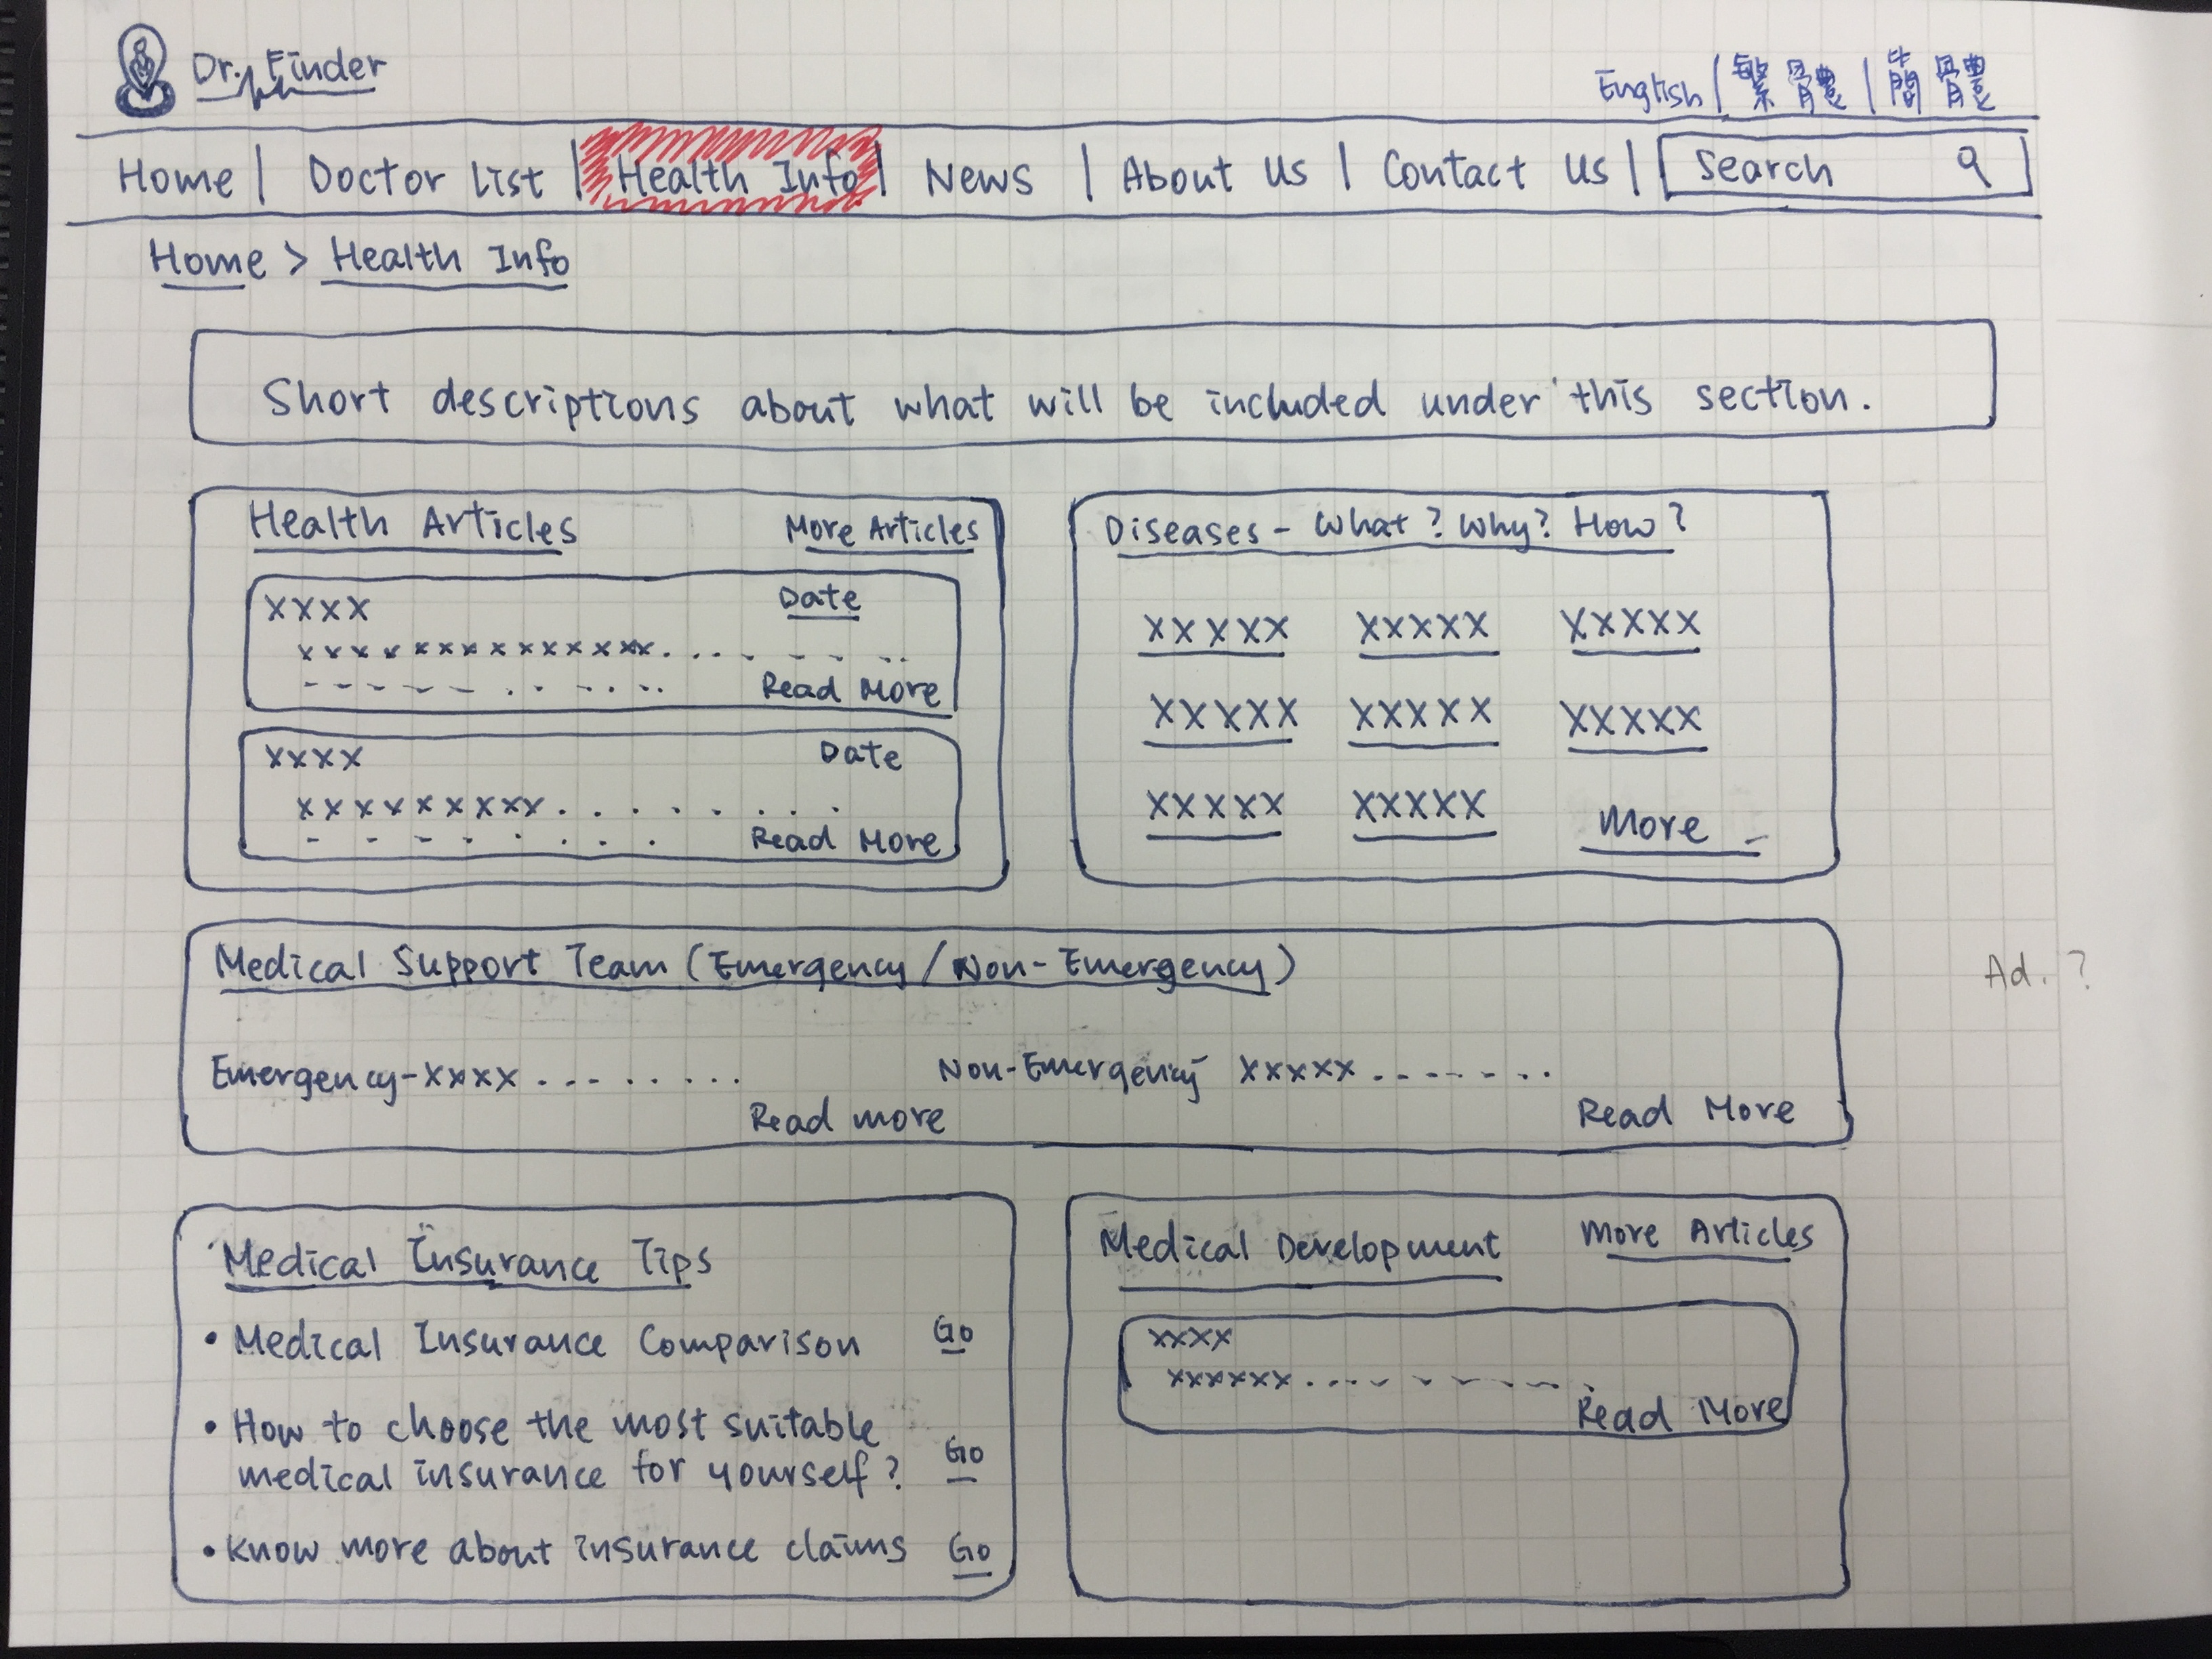 Dr. Finder
English | 繁體 | 簡體
Home | Doctor List | Health Info | News | About Us | Contact Us | Search
Home > Health Info
Short descriptions about what will be included under this section.
Health Articles More Articles
xxxx Date
xxxxxxxxxxxxxx...
Read More
xxxx Date
xxxxxxxxx........
Read More
Diseases - What? Why? How?
xxxxx xxxxx xxxxx
xxxxx xxxxx xxxxx
xxxxx xxxxx More
Medical Support Team (Emergency/Non-Emergency)
Emergency-xxxx........
Read more
Non-Emergency xxxxx........
Read More
Ad. ?
Medical Insurance Tips
• Medical Insurance Comparison Go
• How to choose the most suitable
medical insurance for yourself? Go
• Know more about insurance claims Go
Medical Development More Articles
xxxx
xxxxxx........
Read More